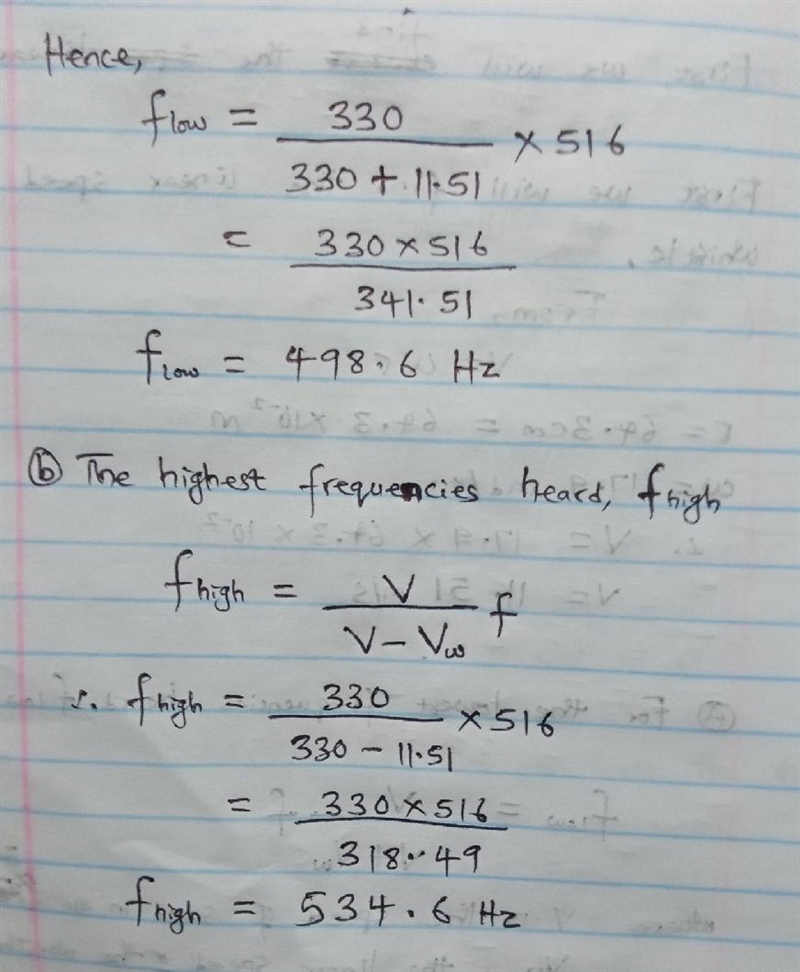 Hence,
f low = 330 / 330 + 11.51 × 516
= 330 × 516 / 341.51
f low = 498.6 Hz
ⓑ The highest frequencies heard, f high
f high = V / V - Vw f
∴ f high = 330 / 330 - 11.51 × 516
= 330 × 516 / 318.49
f high = 534.6 Hz